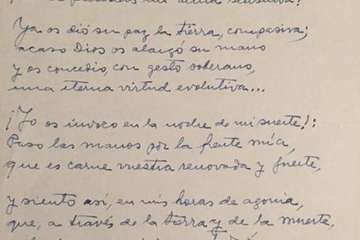 Ya os dió su paz la tierra, compasiva;
acaso Dios os alargó su mano
y os concedio, con gesto soberano,
una eterna virtud evolutiva...
¡Yo os invoco en la noche de mi suerte!:
Paso las manos por la frente mía,
que es carne vuestra renovada y fuerte,
y siento así, en mis horas de agonía,
que, a través de la tierra y de la muerte,